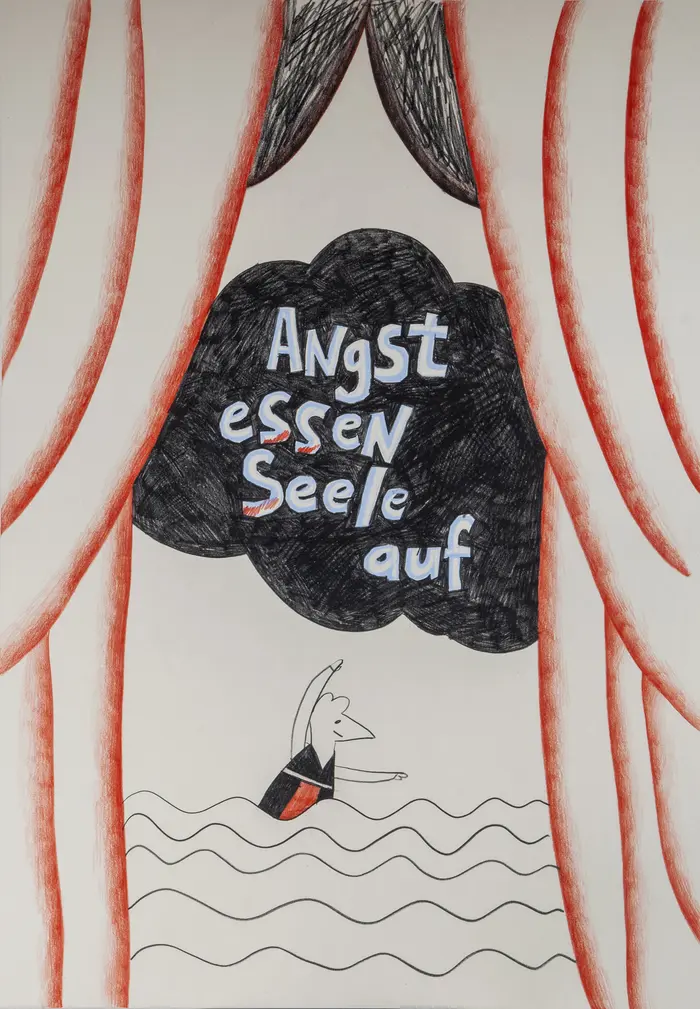 Angst
essen
Seele
auf